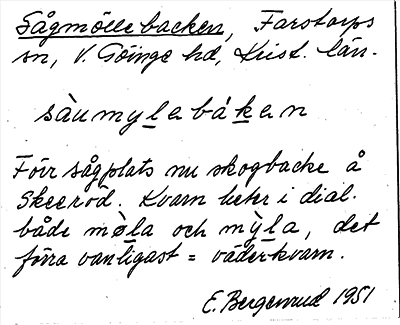 Sågmöllebacken, Farstorps
sn, V. Göinge hd, Krist. län.
sàumylebákæn
Förr sågplats nu skogbacke å
Skeeröd. Kvarn heter i dial.
både mø̀la och mỳla, det
förra vanligast = väderkvarn.
E. Bergenrud 1951